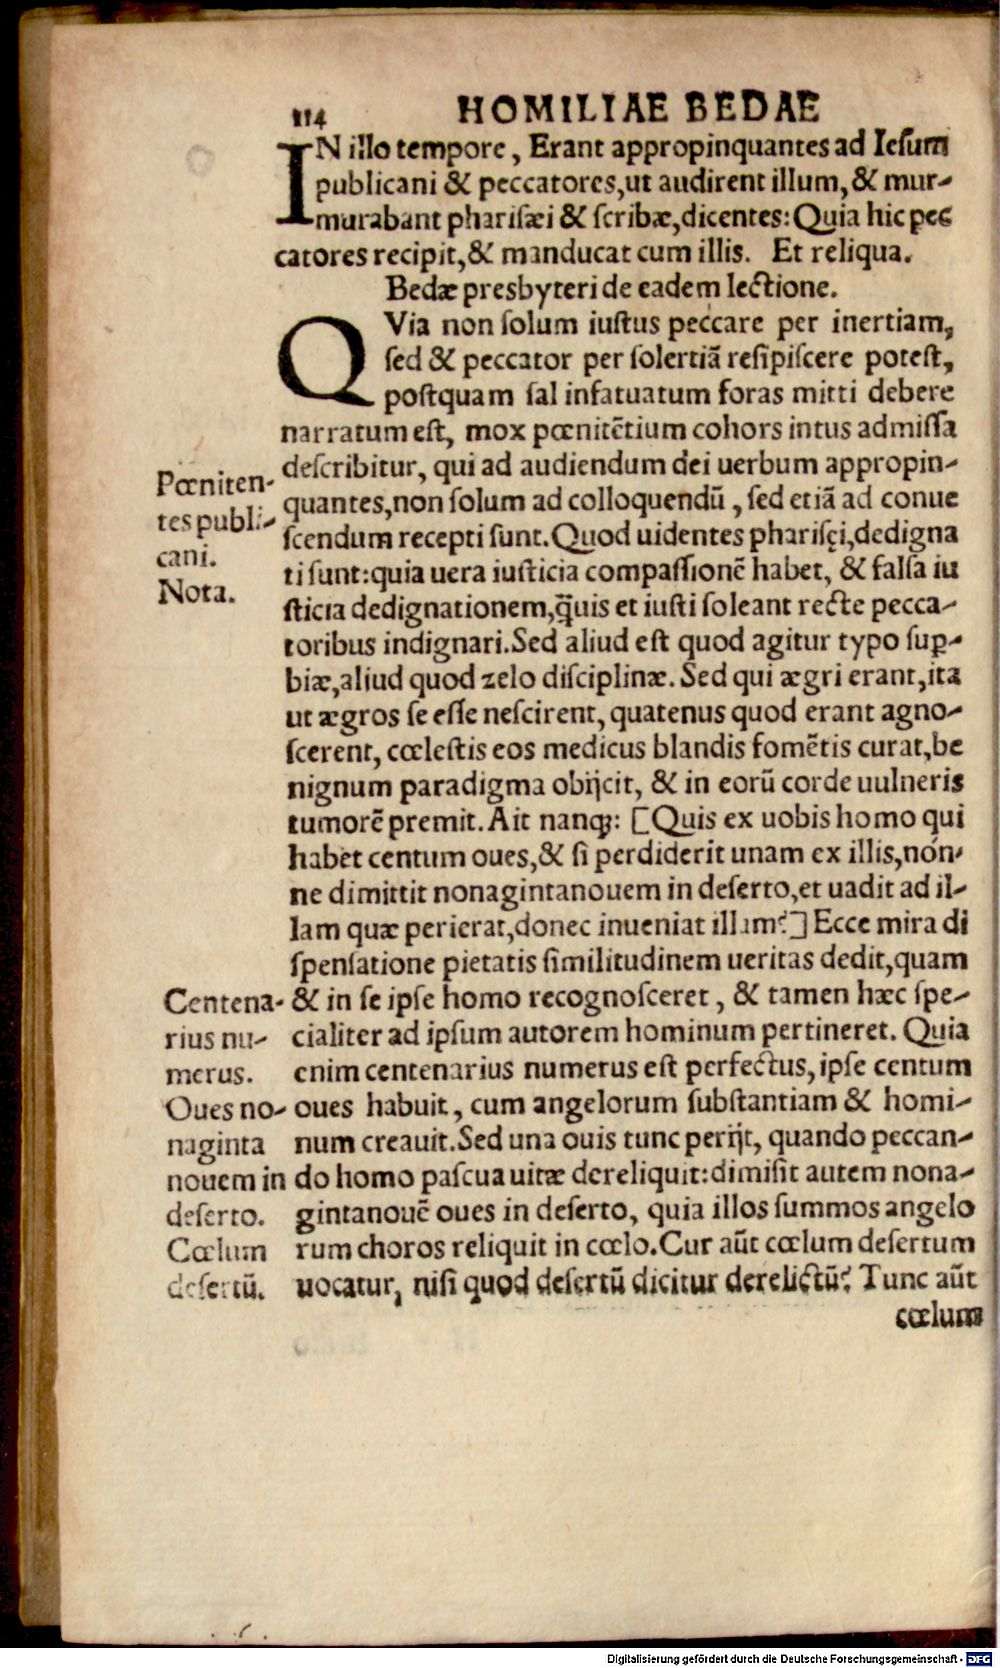 114 HOMILIAE BEDAE
IN illo tempore, Erant appropinquantes ad Iesum
publicani & peccatores, ut audirent illum, & mur-
murabant pharisæi & scribæ, dicentes: Quia hic pec
catores recipit, & manducat cum illis. Et reliqua.
Bedæ presbyteri de eadem lectione.
QVia non solum iustus peccare per inertiam,
sed & peccator per solertiã resipiscere potest,
postquam sal infatuatum foras mitti debere
narratum est, mox pœnitẽtium cohors intus admissa
describitur, qui ad audiendum dei uerbum appropin-
quantes, non solum ad colloquendũ, sed etiã ad conue
scendum recepti sunt. Quod uidentes pharisęi, dedigna
ti sunt: quia uera iusticia compassionẽ habet, & falsa iu
sticia dedignationem, q̃uis et iusti soleant recte pecca-
toribus indignari. Sed aliud est quod agitur typo sup̱-
biæ, aliud quod zelo disciplinæ. Sed qui ægri erant, ita
ut ægros se esse nescirent, quatenus quod erant agno-
scerent, cœlestis eos medicus blandis fomẽtis curat, be
nignum paradigma obijcit, & in eorũ corde uulneris
tumorẽ premit. Ait nanq;: [Quis ex uobis homo qui
habet centum oues, & si perdiderit unam ex illis, nón-
ne dimittit nonagintanouem in deserto, et uadit ad il-
lam quæ perierat, donec inueniat illam?] Ecce mira di
spensatione pietatis similitudinem ueritas dedit, quam
& in se ipse homo recognosceret, & tamen hæc spe-
cialiter ad ipsum autorem hominum pertineret. Quia
enim centenarius numerus est perfectus, ipse centum
oues habuit, cum angelorum substantiam & homi-
num creauit. Sed una ouis tunc perijt, quando peccan-
do homo pascua uitæ dereliquit: dimisit autem nona-
gintanouẽ oues in deserto, quia illos summos angelo
rum choros reliquit in cœlo. Cur aũt cœlum desertum
uocatur, nisi quod desertũ dicitur derelictũ? Tunc aũt
cœlum
Pœniten-
tes publi-
cani.
Nota.
Centena-
rius nu-
merus.
Oues no-
naginta
nouem in
deserto.
Cœlum
desertũ.
Digitalisierung gefördert durch die Deutsche Forschungsgemeinschaft - DFG